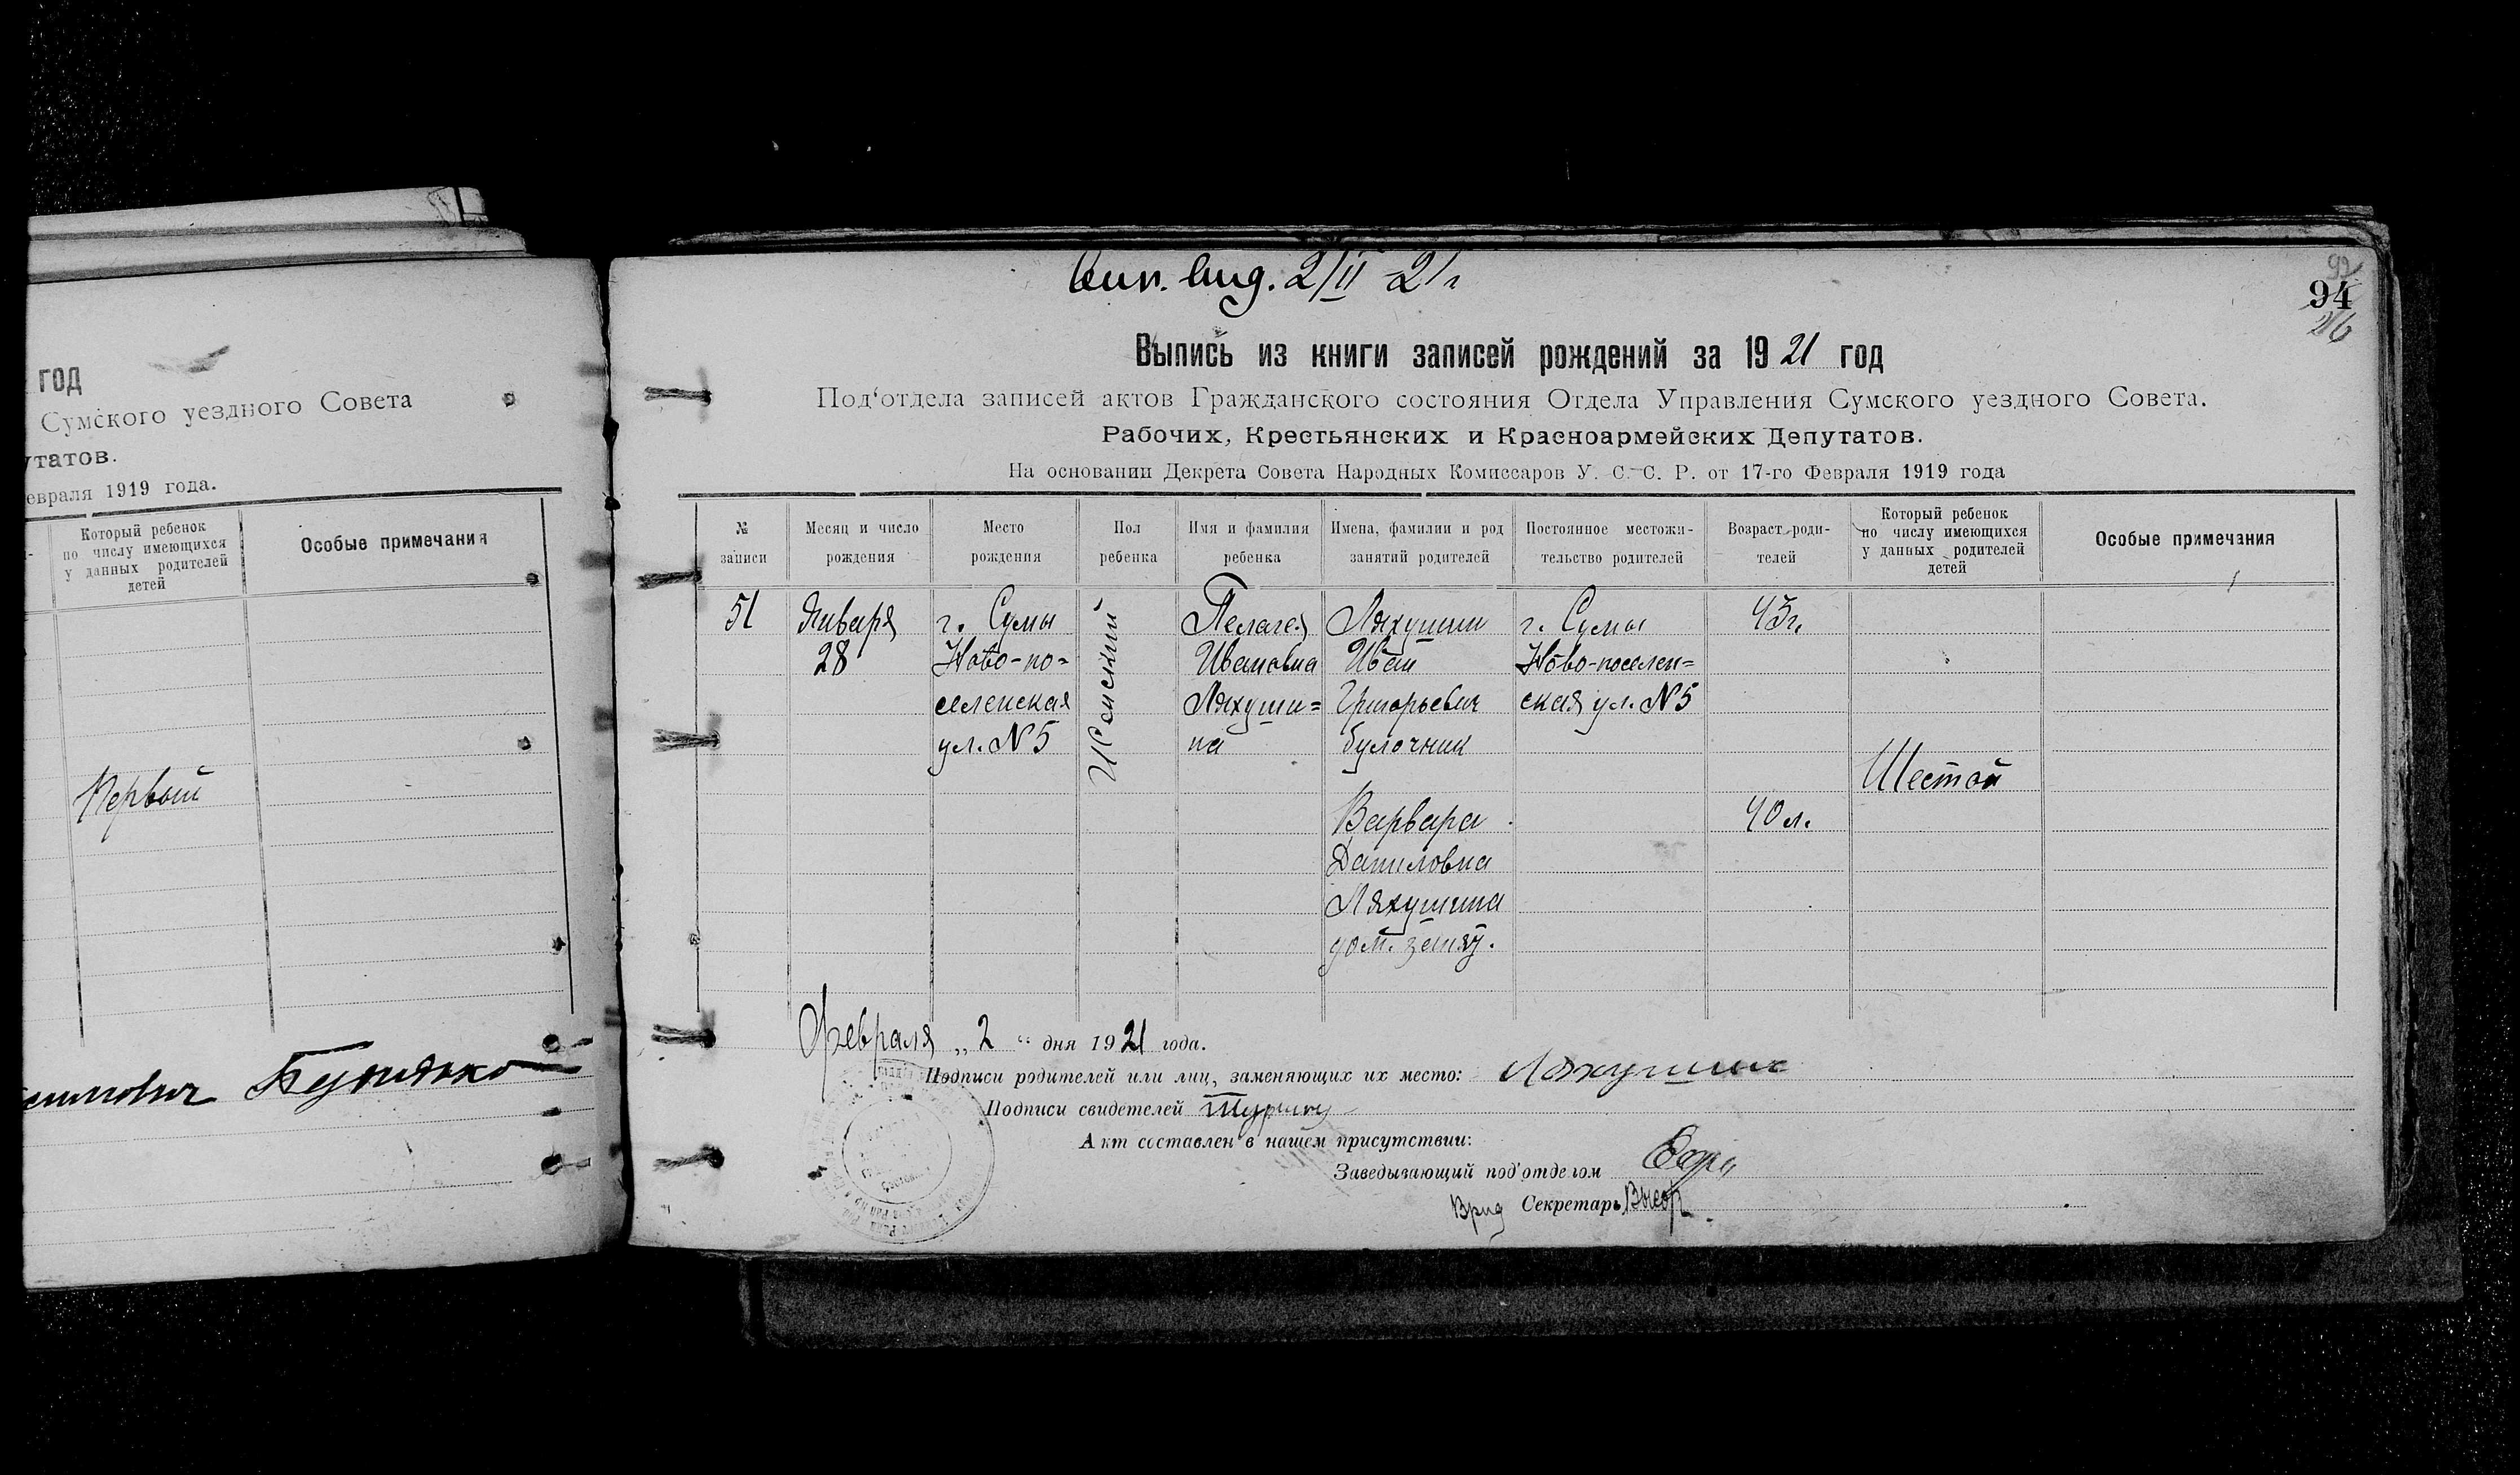 год
Сумского уездного Совета
утатов.
евраля 1919 года.
Который ребенок
по числу имеющихся
у данных родителей
детей
Особые примечания
Первый
Буридко
94
2/II 21 г
Выпись из книги записей рождений за 1921 год
Под'отдела записей актов Гражданского состояния Отдела Управления Сумского уездного Совета.
Рабочих, Крестьянских и Красноармейских Депутатов.
На основании Декрета Совета Народных Комиссаров У. С. С. Р. от 17-го Февраля 1919 года
№
записи
Месяц и число
рождения
Место
рождения
Пол
ребенка
Имя и фамилия
ребенка
Имена, фамилии и род
занятий родителей
Постоянное местожи-
тельство родителей
Возраст роди-
телей
Который ребенок
по числу имеющихся
у данных родителей
детей
Особые примечания
51
Января
28
г. Сумы
Ново-по=
селенская
ул. N 5
Женский
Пелагея
Ивановна
Ляхуши=
на
Ляхушин
Иван
Григорьевич
булочник
Варвара
Даниловна
Ляхушина
дом. занят.
г. Сумы
Ново-поселен=
ская ул. N 5
43 г.
40 л.
Шестой
Февраля „ 2 “ дня 1921 года.
Подписи родителей или лиц, заменяющих их место: Ляхушин
Подписи свидетелей
Акт составлен в нашем присутствии:
Заведывающий под'отделом
Врид Секретарь